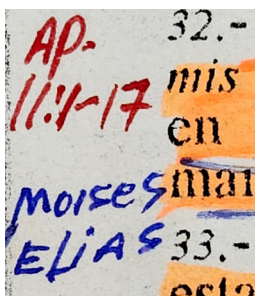 AP.
11:1-17
MOISES
ELIAS
32.-
mis
en
33.-
esta